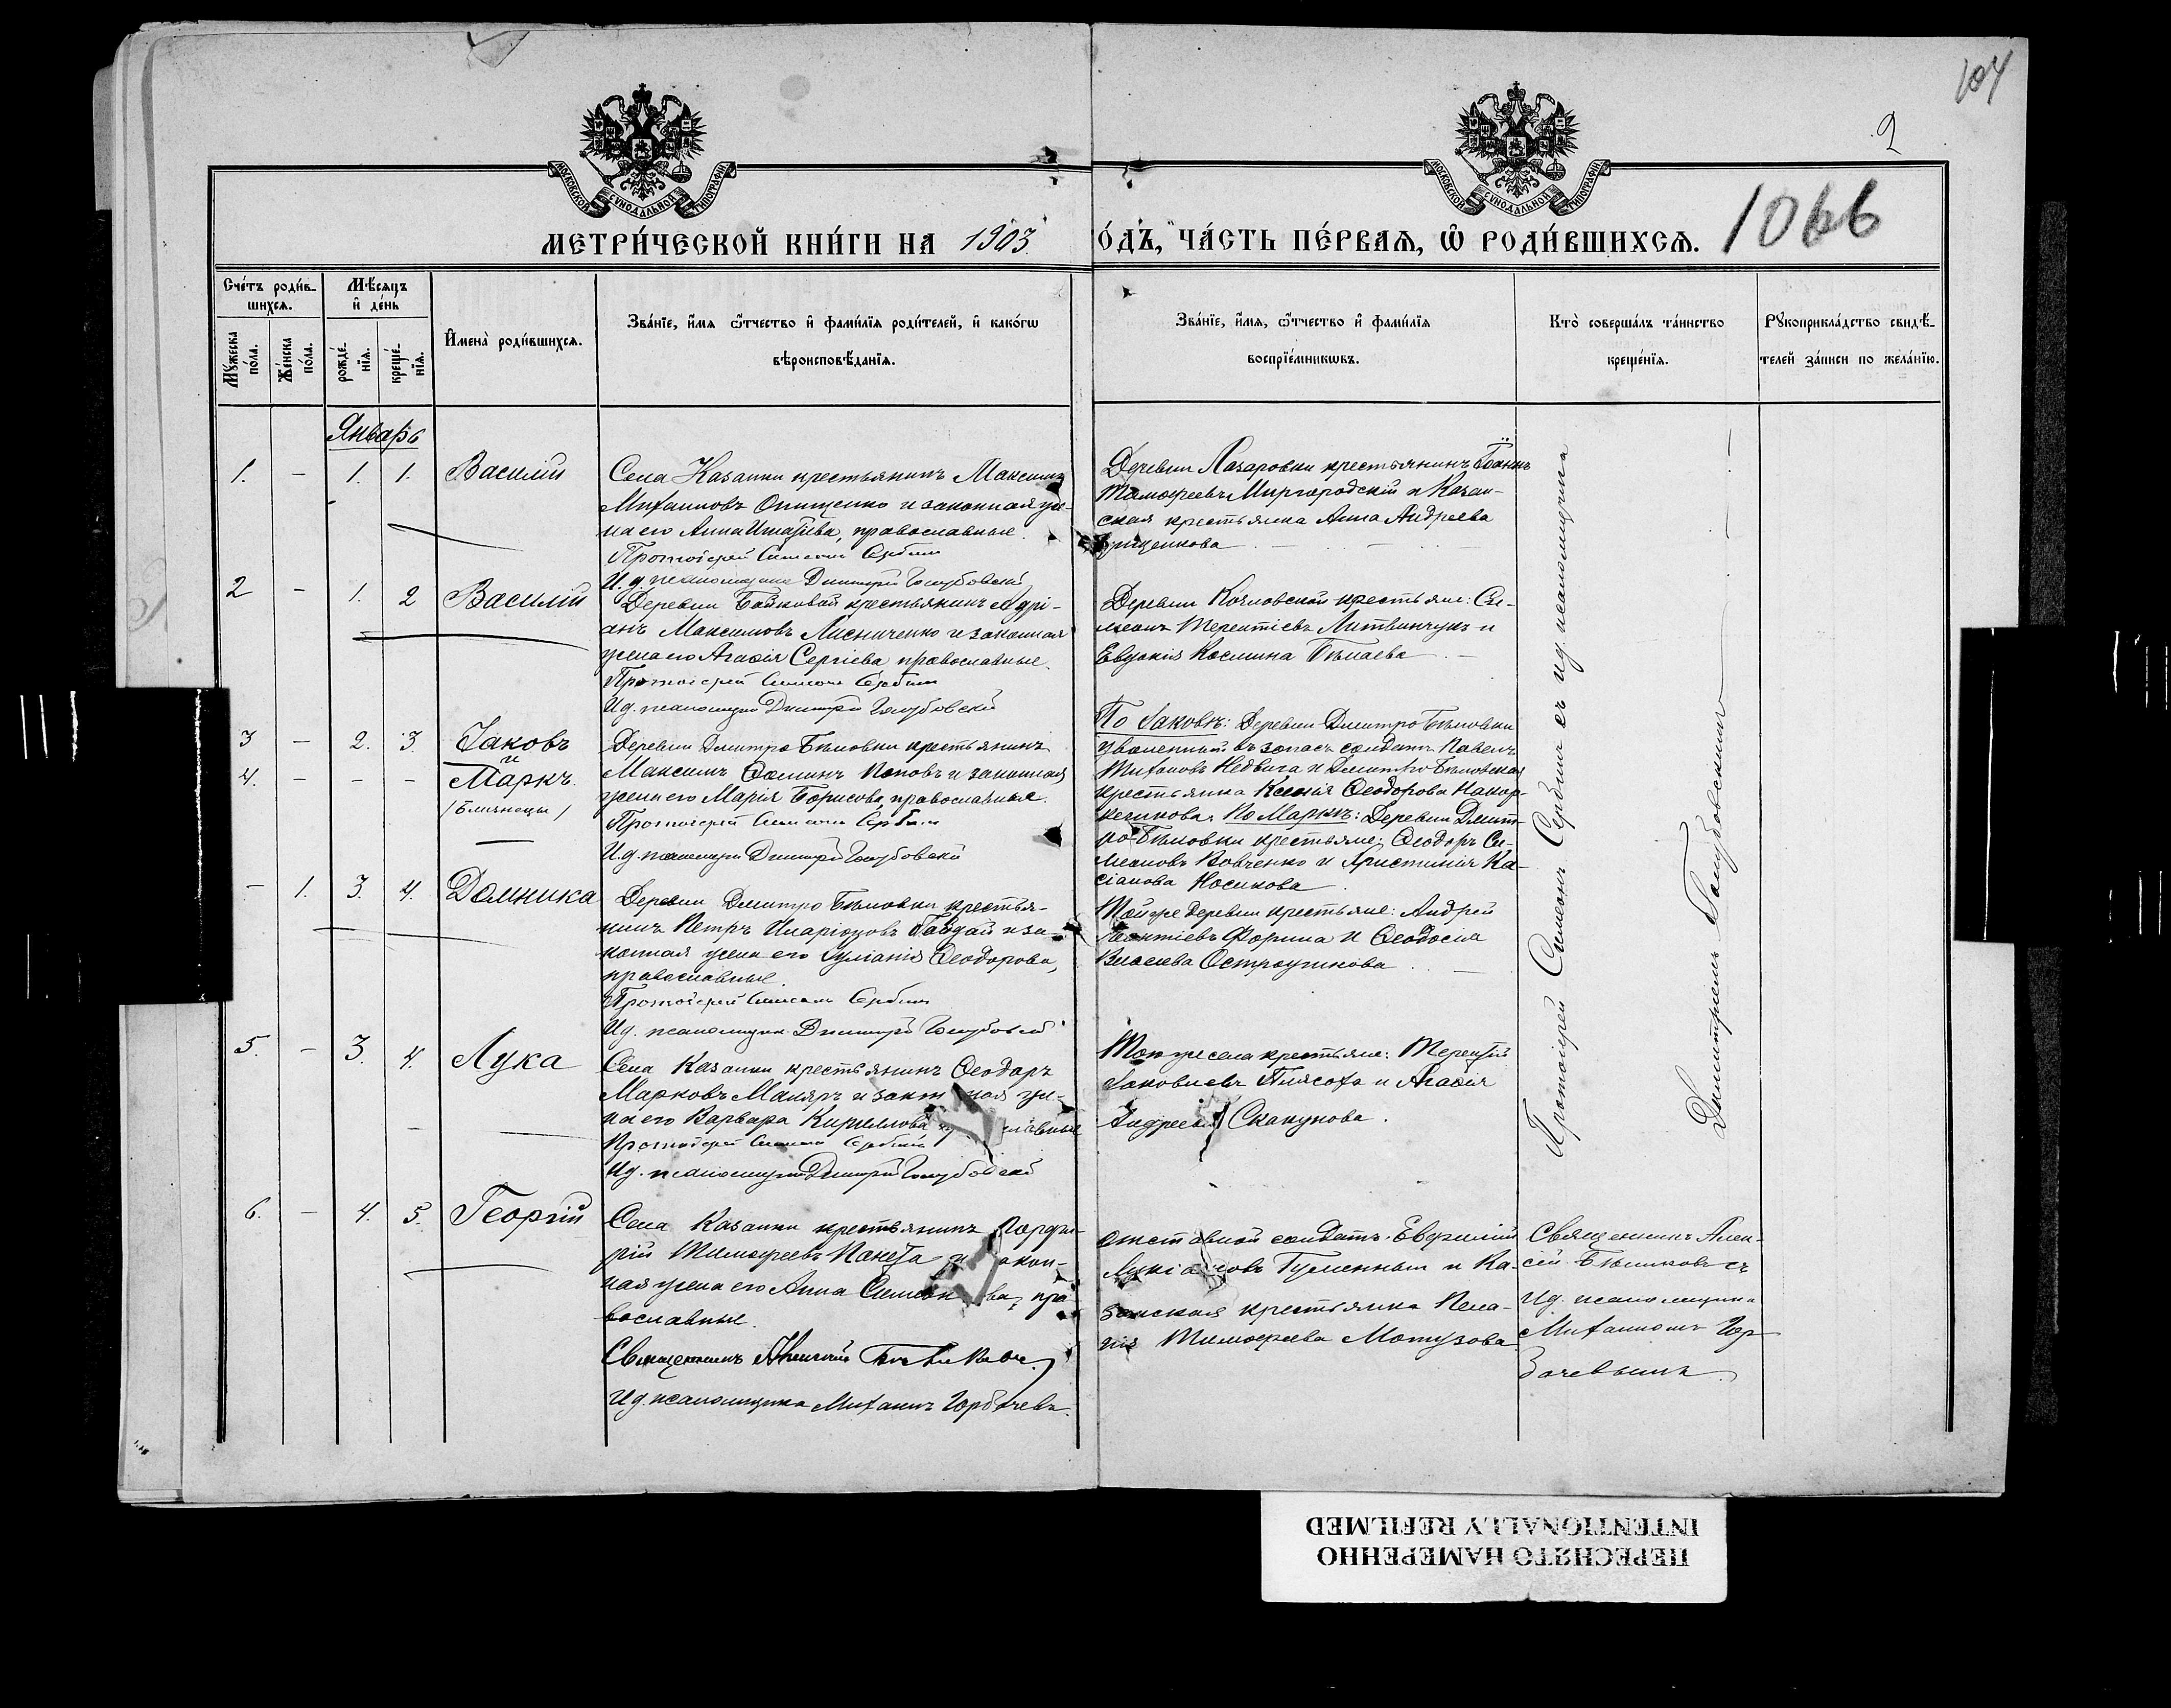 104
2
МОСКОВСКОЙ СѴНОДАЛЬНОЙ ТИПОГРАФІИ
МОСКОВСКОЙ СѴНОДАЛЬНОЙ ТИПОГРАФІИ
МЕТРИ́ЧЕСКОЙ КНИ́ГИ НА 1903
О́ДЪ, ЧА́СТЬ ПЕ́РВАѦ, Ѽ РОДИ́ВШИХСѦ.
1066
Сче́тъ роди́в-
шихсѧ.
Мѣ́сѧцъ
и҆ де́нь
Мꙋ́жеска
по́ла.
Же́нска
по́ла.
рожде́-
нїѧ.
креще́-
нїѧ.
И҆мена̀ роди́вшихсѧ.
Зва́нїе, и҆́мѧ ѻ҆́тчество и҆ фами́лїѧ роди́телей, и҆ како́гѡ
вѣроисповѣ́данїѧ.
Зва́нїе, и҆́мѧ, ѻ҆́тчество и҆ фами́лїѧ
воспрїе́мникѡвъ.
Кто̀ соверша́лъ та́инство
креще́нїѧ.
Рꙋкоприкла́дство свидѣ́-
телей за́писи по жела́нїю.
Январь
1. — 1. 1. Василій
Села Казанки крестьянинъ Максимъ
Михаиловъ Онищенко и законная же-
на его Анна Игнатіева, православные.
Протоіерей Симеонъ Сербинъ
И. д. псаломщика Димитрій Голубовскій
Деревни Лазаровки крестьянинъ Іоаннъ
Тимофеевъ Миргородскій и Казан-
ская крестьянка Анна Андреева
2 — 1. 2 Василій
Деревни Байковой крестьянинъ Адрі-
анъ Максимовъ Лисниченко и законная
жена его Агафія Сергіева православные.
Протоіерей Симеонъ Сербинъ
И д. псаломщика Димитрій Голубовскій
Деревни Козловской крестьяне: Си-
меонъ Терентіевъ Литвинчукъ и
Евдокія Косьмина Бѣлаева
3 — 2. 3. Іаковъ
и
4. — — — Маркъ
/Близнецы/
Деревни Димитро Бѣловки крестьянинъ
Максимъ Ѳоминъ Поповъ и законная
жена его Марія Борисова, православные.
Протоіерей Симеонъ Сербинъ
И. д. псаломщика Димитрій Голубовскій
По Іаковѣ: Деревни Димитро Бѣловки
уволенный въ запасъ солдатъ Павелъ
Михаиловъ Недвига и Димитро-Бѣловская
крестьянка Ксенія Ѳеодорова
По Маркѣ: Деревни Димит-
ро-Бѣловки крестьяне: Ѳеодоръ Си-
меоновъ Вовченко и Христинія Ка-
сіанова Носикова
— 1. 3. 4. Домника
Деревни Димитро Бѣловки крестья-
нинъ Петръ Иларіоновъ Гайдай и за-
конная жена его Іуліанія Ѳеодорова,
православные.
Протоіерей Симеонъ Сербинъ
И д. псаломщика Димитрій Голубовскій
Той же деревни крестьяне: Андрей
Леонтіевъ Форина и Ѳеодосія
Власіева Остроушкова
5. — 3. 4. Лука
Села Казанки крестьянинъ Ѳеодоръ
Марковъ Маляръ и зак ная же-
на его Варвара Кириллова славные
Протоіерей Симеонъ Сербинъ
И д. псаломщика Димитрій Голубовскій
Того же села крестьяне: Терентій
Іаковлевъ Плясоха и Агафія
Андреева Скакунова.
Протоіерей Симеонъ Сербинъ съ и д псаломщика
Димитріемъ Голубовскимъ
6. — 4. 5. Георгій
Села Казанки крестьянинъ Порфи-
рій Тимофеевъ и закон-
ная жена его Анна Симеон ва, пра-
вославные.
Священникъ Алексій Бѣликовъ
И д. псаломщика Михаилъ Горбачевъ.
отставной солдатъ Евфимій
Лукіановъ Гуменный и Ка-
занская крестьянка Пела-
гія Тимофеева Мотузова
Священникъ Алек-
сій Бѣликовъ съ
И д. псаломщика
Михаиломъ Гор-
бачевымъ.
ПЕРЕСНЯТО НАМЕРЕННО
INTENTIONALLY REFILMED